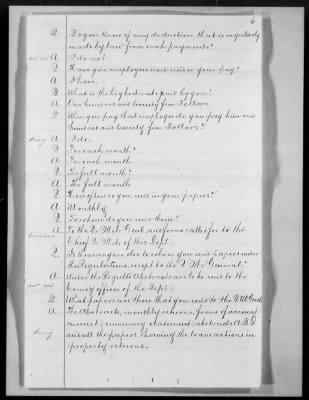 6
Q. Do you know of any deduction that is regularly
made by law from such payments?
A I do not.
Q Have you employees now under your pay?
A I have.
Q What is the highest rate paid by you?
A One hundred and twenty five Dollars.
Q When you pay that employee do you pay him one
hundred and twenty five Dollars?
A I do.
Q For each month?
A For each month
Q The full month?
A The full month
Q How often do you send in your papers?
A Monthly
Q To whom do you send them?
A To the Qr Mr Genl, and forms called for to the
Chief Q Mr of this Dept.
Q Is there any one else to whom you send papers under
the Regulations, except to the Q Mr General?
A Under the Regulations Abstracts are to be sent to the
Comdg officer of the Dept.
Q What papers are those that you send to the Q M Genl
A The Abstracts, monthly returns, forms of account
current, summary statement, abstracts A. B. &
and all the papers showing the transactions in
property returns.